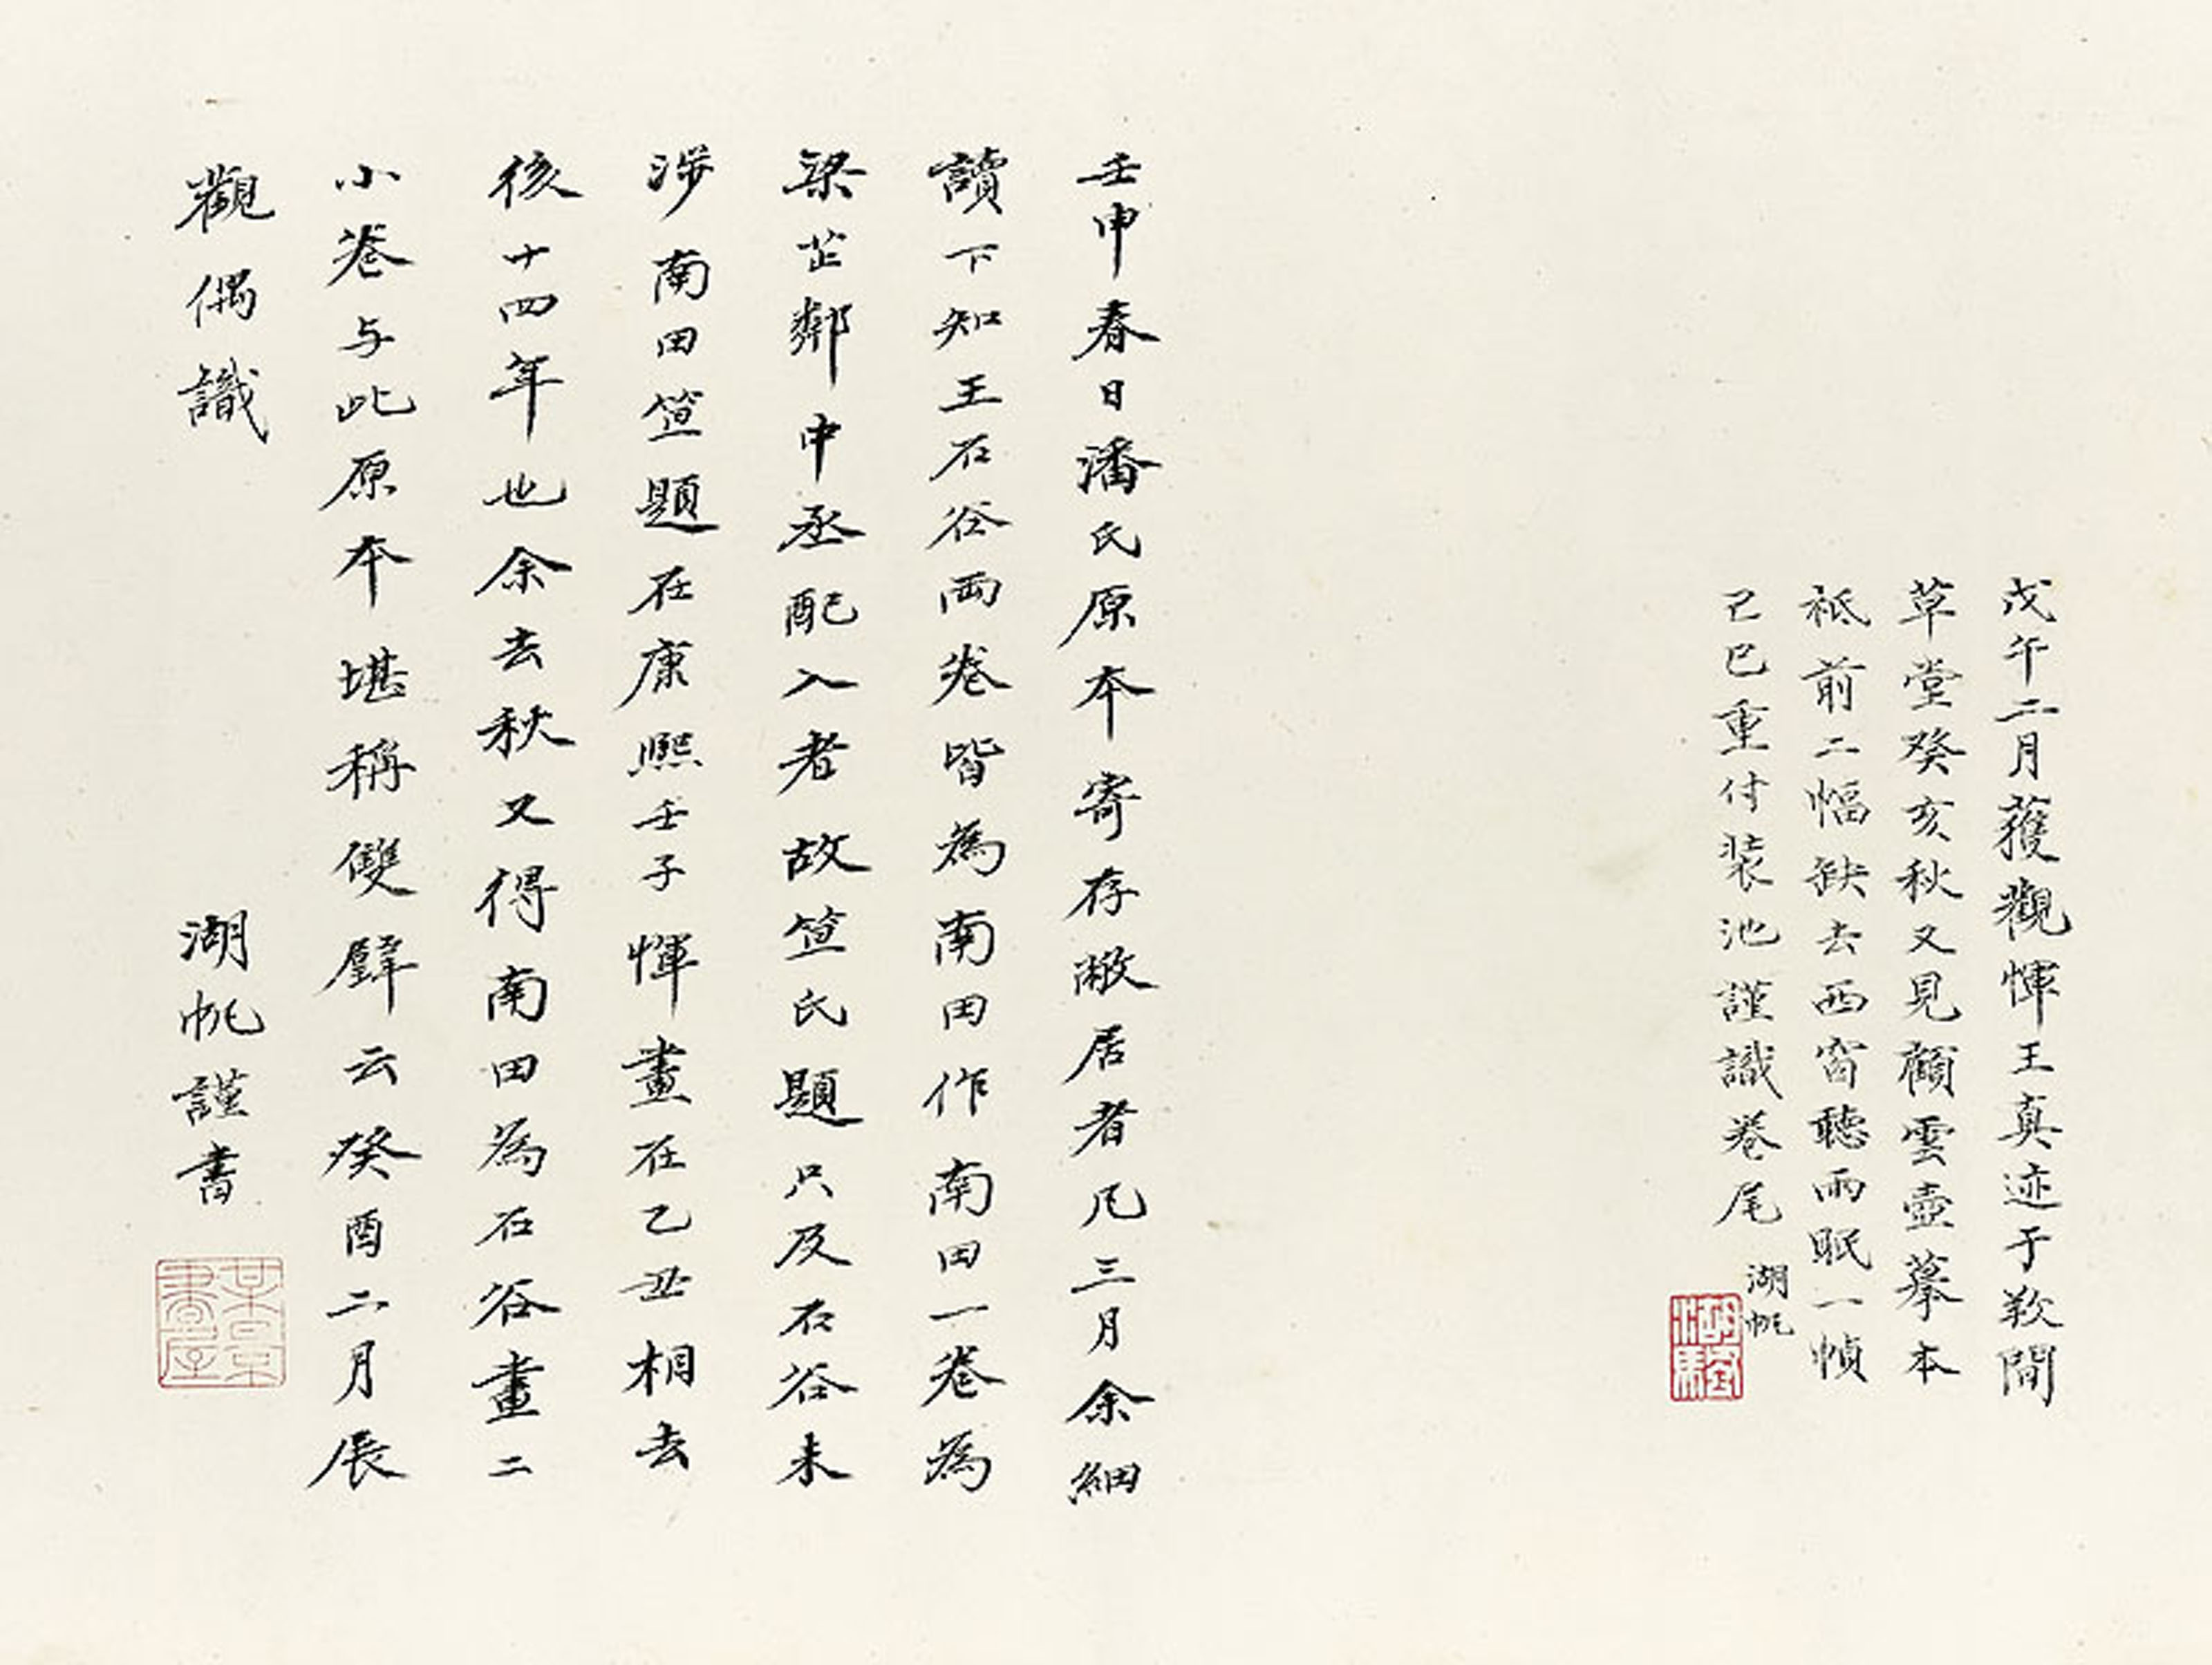 戊午二月獲觀惲王真迹于歉閒
草堂癸亥秋又見顧雲壺摹本
祗前二幅缺去西窗聽雨眠一幀
己巳重付装池謹識卷尾
湖帆
壬申春日潘氏原本寄存敝居者凡三月余細
讀下知王石谷兩卷皆為南田作南田一卷為
梁芷鄰中丞配入者故笪氏題只及石谷未
涉南田笪題在康熙壬子惲畫在乙丑相去
後十四年也余去秋又得南田為石谷畫二
小卷与此原本堪稱雙璧云癸酉二月展
觀偶識
湖帆謹書